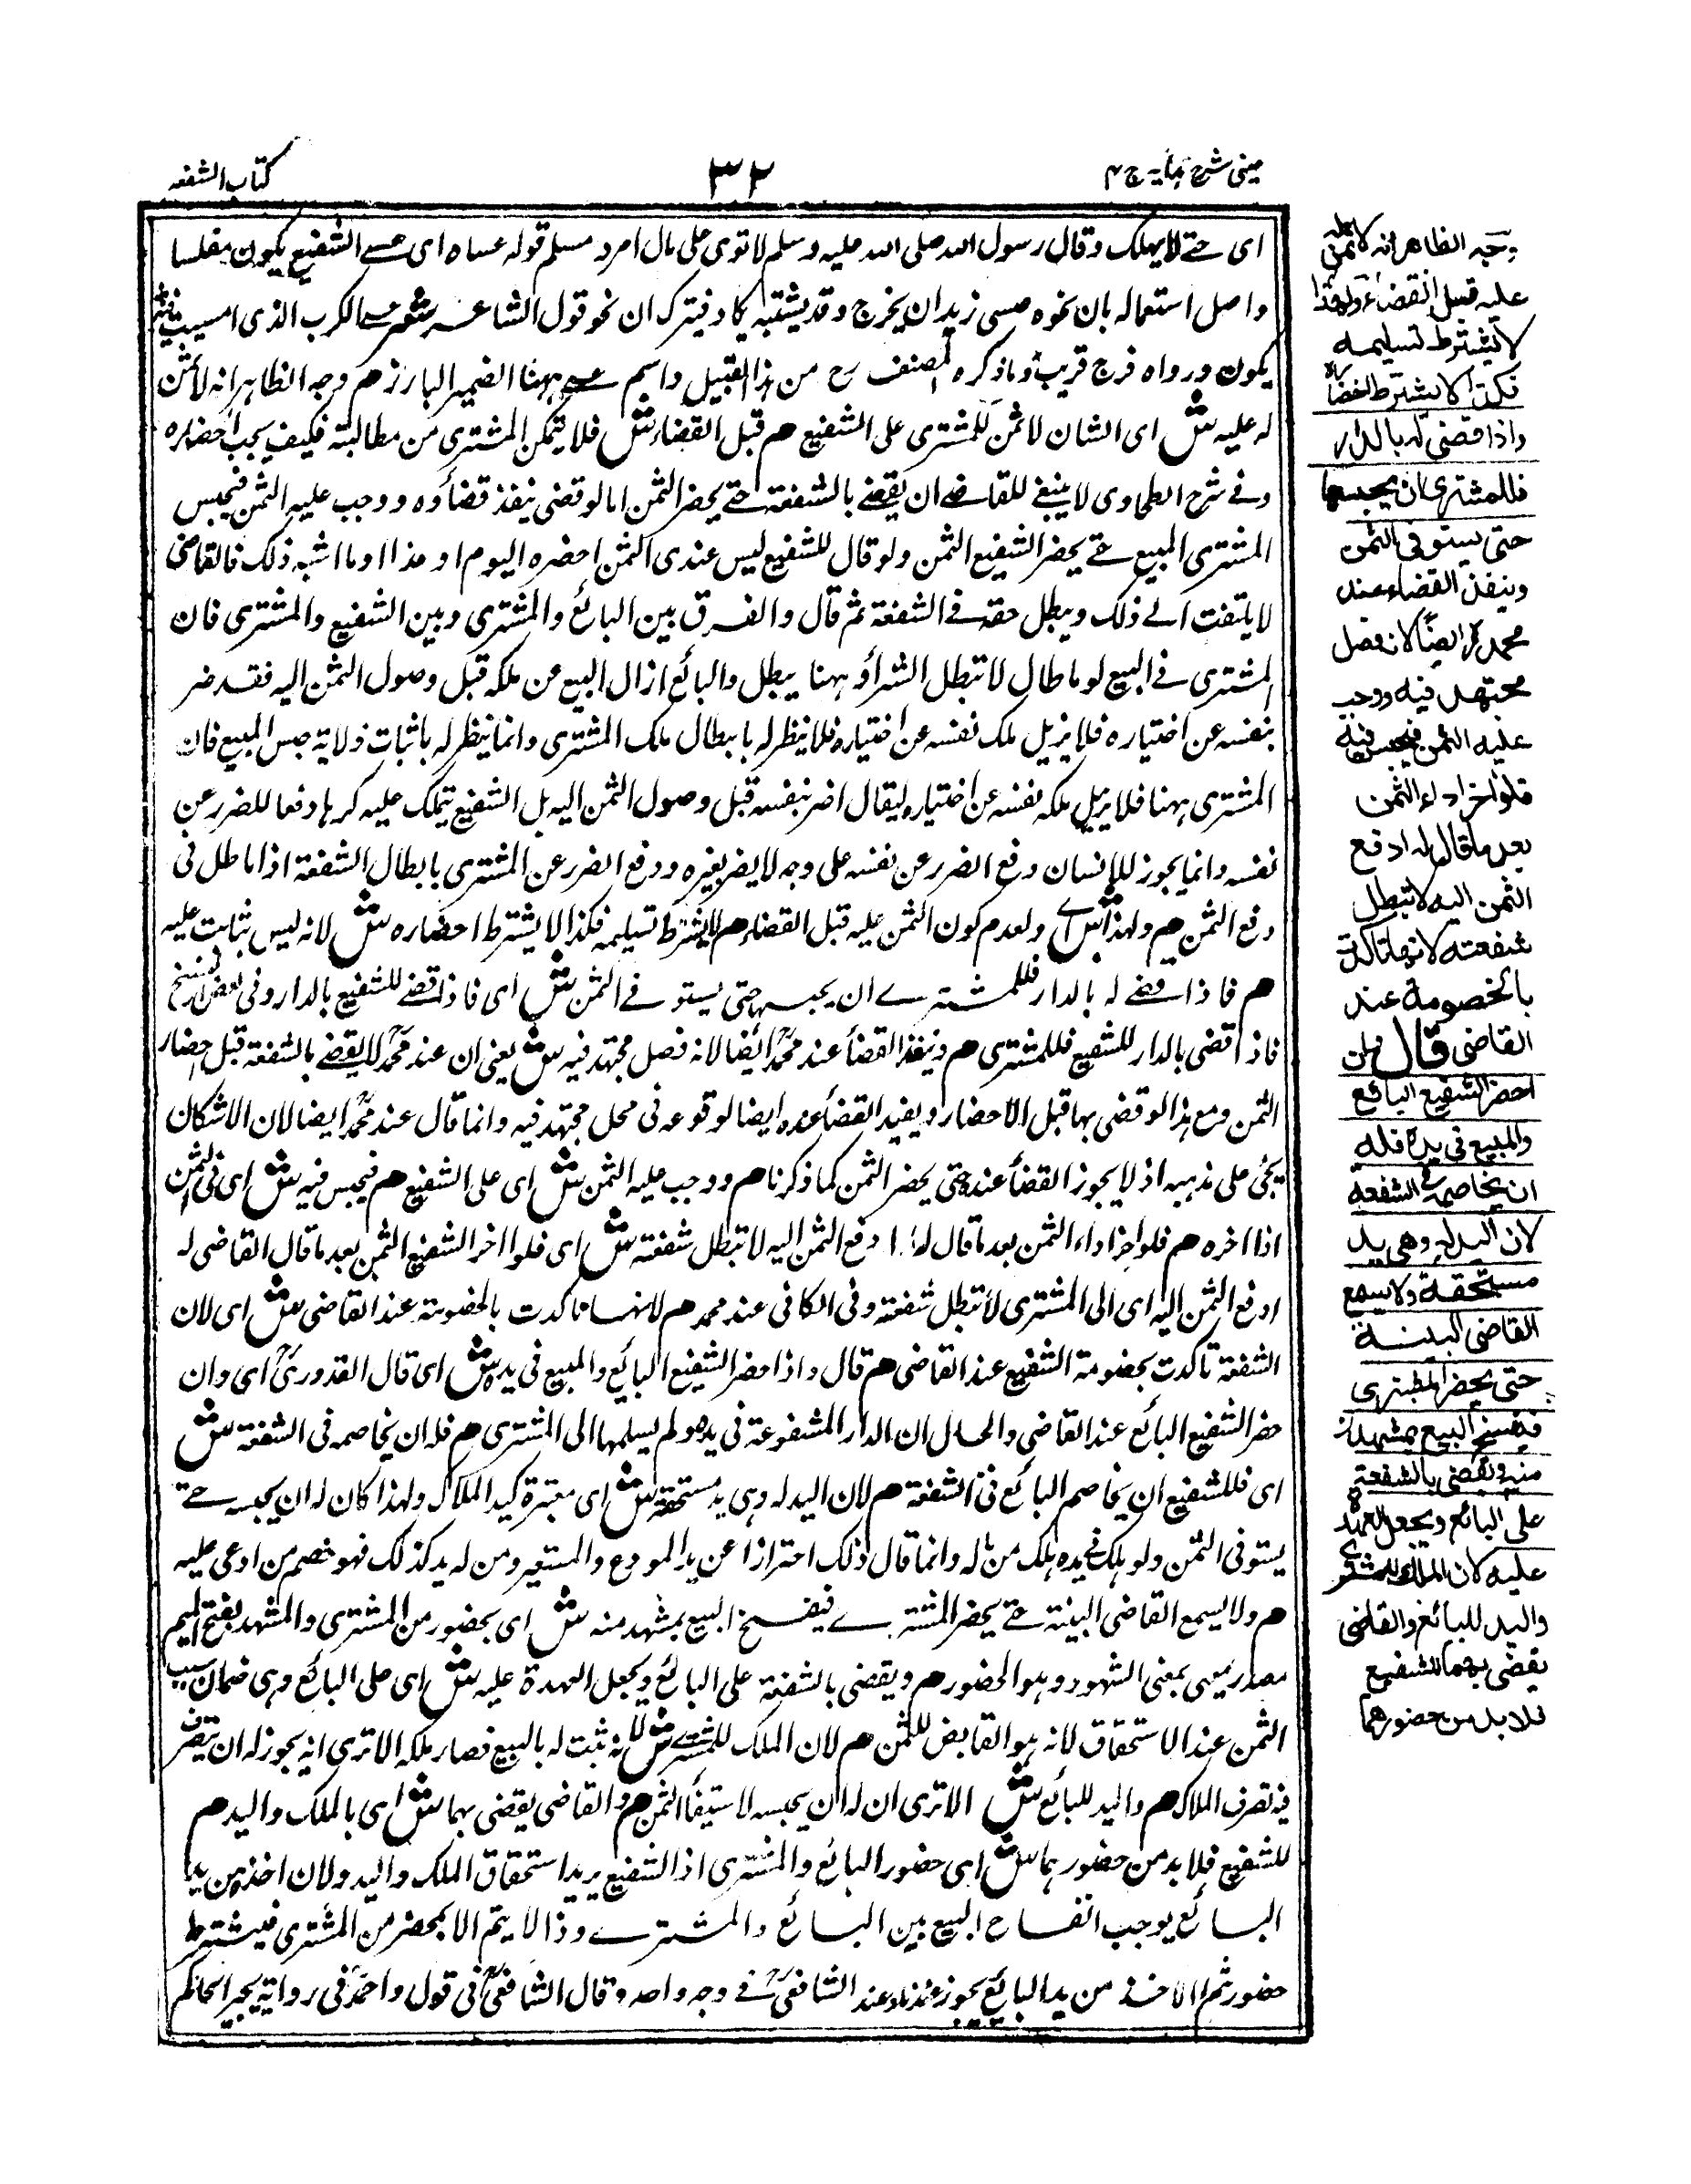 عینی شرح ہدایہ ج ۴
۳۲
کتاب الشفعہ
ای حتے لا یہلک وقال رسول اللہ صلی اللہ علیہ وسلم لا توی علی مال امرء مسلم قولہ عساہ ای عسے الشفیع یکون مفلسا
واصل استعمالہ بان نحوہ عسی زید ان یخرج وقد یشتبہ بکاد فیترک ان نحو قول الشاعر شعر عسے الکرب الذی امسیت فیہ
یکون وراہ فرج قریب وما ذکرہ المصنف رح من ہذا القبیل واسم عسے ہہنا الضمیر البارز ھم وجہ الظاہر انہ لا ثمن
لہ علیہ ش ای الشان لا ثمن للمشتری علی الشفیع ھم قبل القضاء ش فلا یتمکن المشتری من مطالبتہ فکیف یجب احضارہ
وفے شرح الطحاوی لا ینبغے للقاضے ان یقضے بالشفعۃ حتے یحضر الثمن اما لو قضی ینفذ قضاؤہ ووجب علیہ الثمن فیحبس
المشتری المبیع حتے یحضر الشفیع الثمن ولو قال للشفیع لیس عندی الثمن احضرہ الیوم او غدا او ما اشبہ ذلک فالقاضی
لا یلتفت الے ذلک ویبطل حقہ فے الشفعۃ ثم قال والفرق بین البائع والمشتری وبین الشفیع والمشتری فان
المشتری فے البیع لو ماطال لا تبطل الشراؤ ہہنا یبطل والبائع ازال البیع عن ملکہ قبل وصول الثمن الیہ فقد ضر
بنفسہ عن اختیارہ فلا یزیل ملک نفسہ عن اختیارہ فلا ینظر لہ بابطال ملک المشتری وانما ینظر لہ باثبات ولایۃ حبس المبیع فان
المشتری ہہنا فلا یزیل ملکہ نفسہ عن اختیارہ لیقال اضر بنفسہ قبل وصول الثمن الیہ بل الشفیع یتملک علیہ کرہا دفعا للضرر عن
نفسہ وانما یجوز للانسان دفع الضرر عن نفسہ علی وجہ لا یضر بغیرہ ودفع الضرر عن المشتری بابطال الشفعۃ اذا ماطل فی
دفع الثمن ھم ولہذا ش ای ولعدم کون الثمن علیہ قبل القضاء ھم لا یشترط تسلیمہ فکذا لا یشترط احضارہ ش لانہ لیس بثابت علیہ
ھم فاذا قضے لہ بالدار فللمشترے ان یحبسہا حتی یستوفے الثمن ش ای فاذا قضے للشفیع بالدار وفی بعض النسخ
فاذا قضی بالدار للشفیع فللمشتری ھم وینفذ القضاء عند محمد ایضا لانہ فصل مجتہد فیہ ش یعنی ان عند محمد لا یقضے بالشفعۃ قبل احضار
الثمن ومع ہذا لو قضی بہا قبل الاحضار ویفید القضاء عندہ ایضا لوقوعہ فی محل مجتہد فیہ وانما قال عند محمد ایضا لان الاشکان
یجئ علی مذہبہ اذ لا یجوز القضاء عندہ حتی یحضر الثمن کما ذکرنا ھم ووجب علیہ الثمن ش ای علی الشفیع ھم فیحبس فیہ ش ای فی الثمن
اذا اخرہ ھم فلو اخر اداء الثمن بعد ما قال لہ ادفع الثمن الیہ لا تبطل شفعتہ ش ای فلو اخر الشفیع الثمن بعد ما قال القاضی لہ
ادفع الثمن الیہ ای الی المشتری لا تبطل شفعتہ وفی الکافی عند محمد ھم لانہا تاکدت بالخصومۃ عند القاضی ش ای لان
الشفعۃ تاکدت بخصومۃ الشفیع عند القاضی ھم قال واذا حضر الشفیع البائع والمبیع فی یدہ ش ای قال القدوری ای وان
حضر الشفیع البائع عند القاضی والحال ان الدار المشفوعۃ فی یدہ ولم یسلمہا الی المشتری ھم فلہ ان یخاصمہ فی الشفعۃ ش
ای فللشفیع ان یخاصم البائع فی الشفعۃ ھم لان الید لہ وہی ید مستحقۃ ش ای معتبرۃ کید الملاک ولہذا کان لہ ان یحبسہ حتے
یستوفی الثمن ولو ہلک فی یدہ ہلک من مالہ وانما قال ذلک احترازا عن ید المودع والمستعیر ومن لہ ید کذلک فہو خصم من ادعی علیہ
ھم ولا یسمع القاضی البینۃ حتے یحضر المشترے فیفسخ البیع بمشہد منہ ش ای بحضور من المشتری والمشہد بفتح المیم
مصدر میمی بمعنی الشہود وہو الحضور ھم ویقضی بالشفعۃ علی البائع ویجعل العہدۃ علیہ ش ای علی البائع وہی ضمان سبب
الثمن عند الاستحقاق لانہ ہو القابض للثمن ھم لان الملک للمشترے ش لانہ ثبت لہ بالبیع فصار ملکہ الا تری انہ یجوز لہ ان یتصرف
فیہ تصرف الملاک ھم والید للبائع ش الا تری ان لہ ان یحبسہ لاستیفاء الثمن ھم والقاضی یقضی بہما ش ای بالملک والید ھم
للشفیع فلا بد من حضورہما ش ای حضور البائع والمشتری اذ الشفیع یرید استحقاق الملک والید ولان اخذہ من ید
البائع یوجب انفساخ البیع بین البائع والمشترے وذا لا یتم الا بمحضر من المشتری فیشترط
حضورہ ثم الاخذ من ید البائع یجوز عندنا وعند الشافعی فے وجہ واحد وقال الشافعی فی قول واحمد فی روایۃ یجبر الحاکم
وجہ الظاهر انه لا ثمن له
عليه قبل القضاء ولهذا
لا يشترط تسليمه
فكذا لا يشترط احضاره
واذا قضى له بالدار
فللمشترى ان يحبسها
حتى يستوفى الثمن
وينفذ القضاء عند
محمد ايضا لانه فصل
مجتهد فيه ووجب
عليه الثمن فيحبس فيه
فلو اخر اداء الثمن
بعد ما قال له ادفع
الثمن اليه لا تبطل
شفعته لانها تاكدت
بالخصومة عند
القاضى قال فان
احضر الشفيع البائع
والمبيع فى يده فله
ان يخاصمه فى الشفعة
لان اليد له وهى يد
مستحقة ولا يسمع
القاضى البينة
حتى يحضر المشترى
فيفسخ البيع بمشهد
منه ويقضى بالشفعة
على البائع ويجعل العهدة
عليه لان الملك للمشترى
واليد للبائع والقاضى
يقضى بهما للشفيع
فلا بد من حضورهما